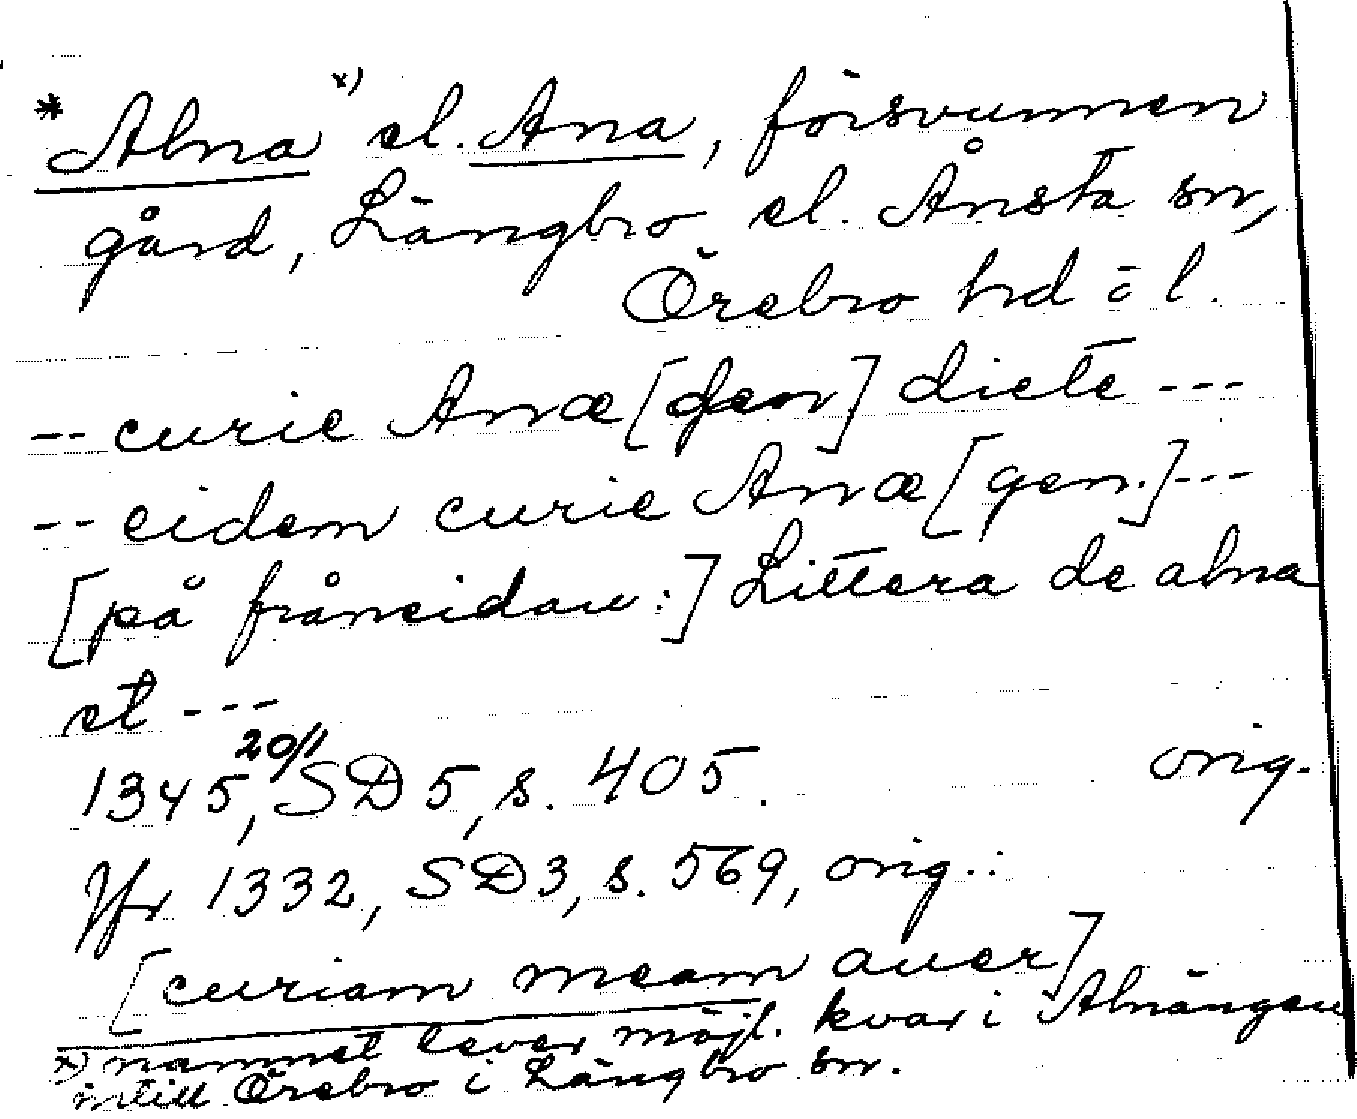 * Alna x) el. Ana, försvunnen
gård, Längbro el. Ånsta sn,
Örebro hd o l.
-- curie Anæ [gen] dicte ---
-- eidem curie Anæ [gen.] ---
[på frånsidan:] Littera de alna
et ---
1345 20/1, SD 5, s. 405. orig.
Jfr 1332, SD 3, s. 569, orig.:
[curiam meam auer]
x) namnet lever möjl. kvar i Alnängen
intill Örebro i Längbro sn.